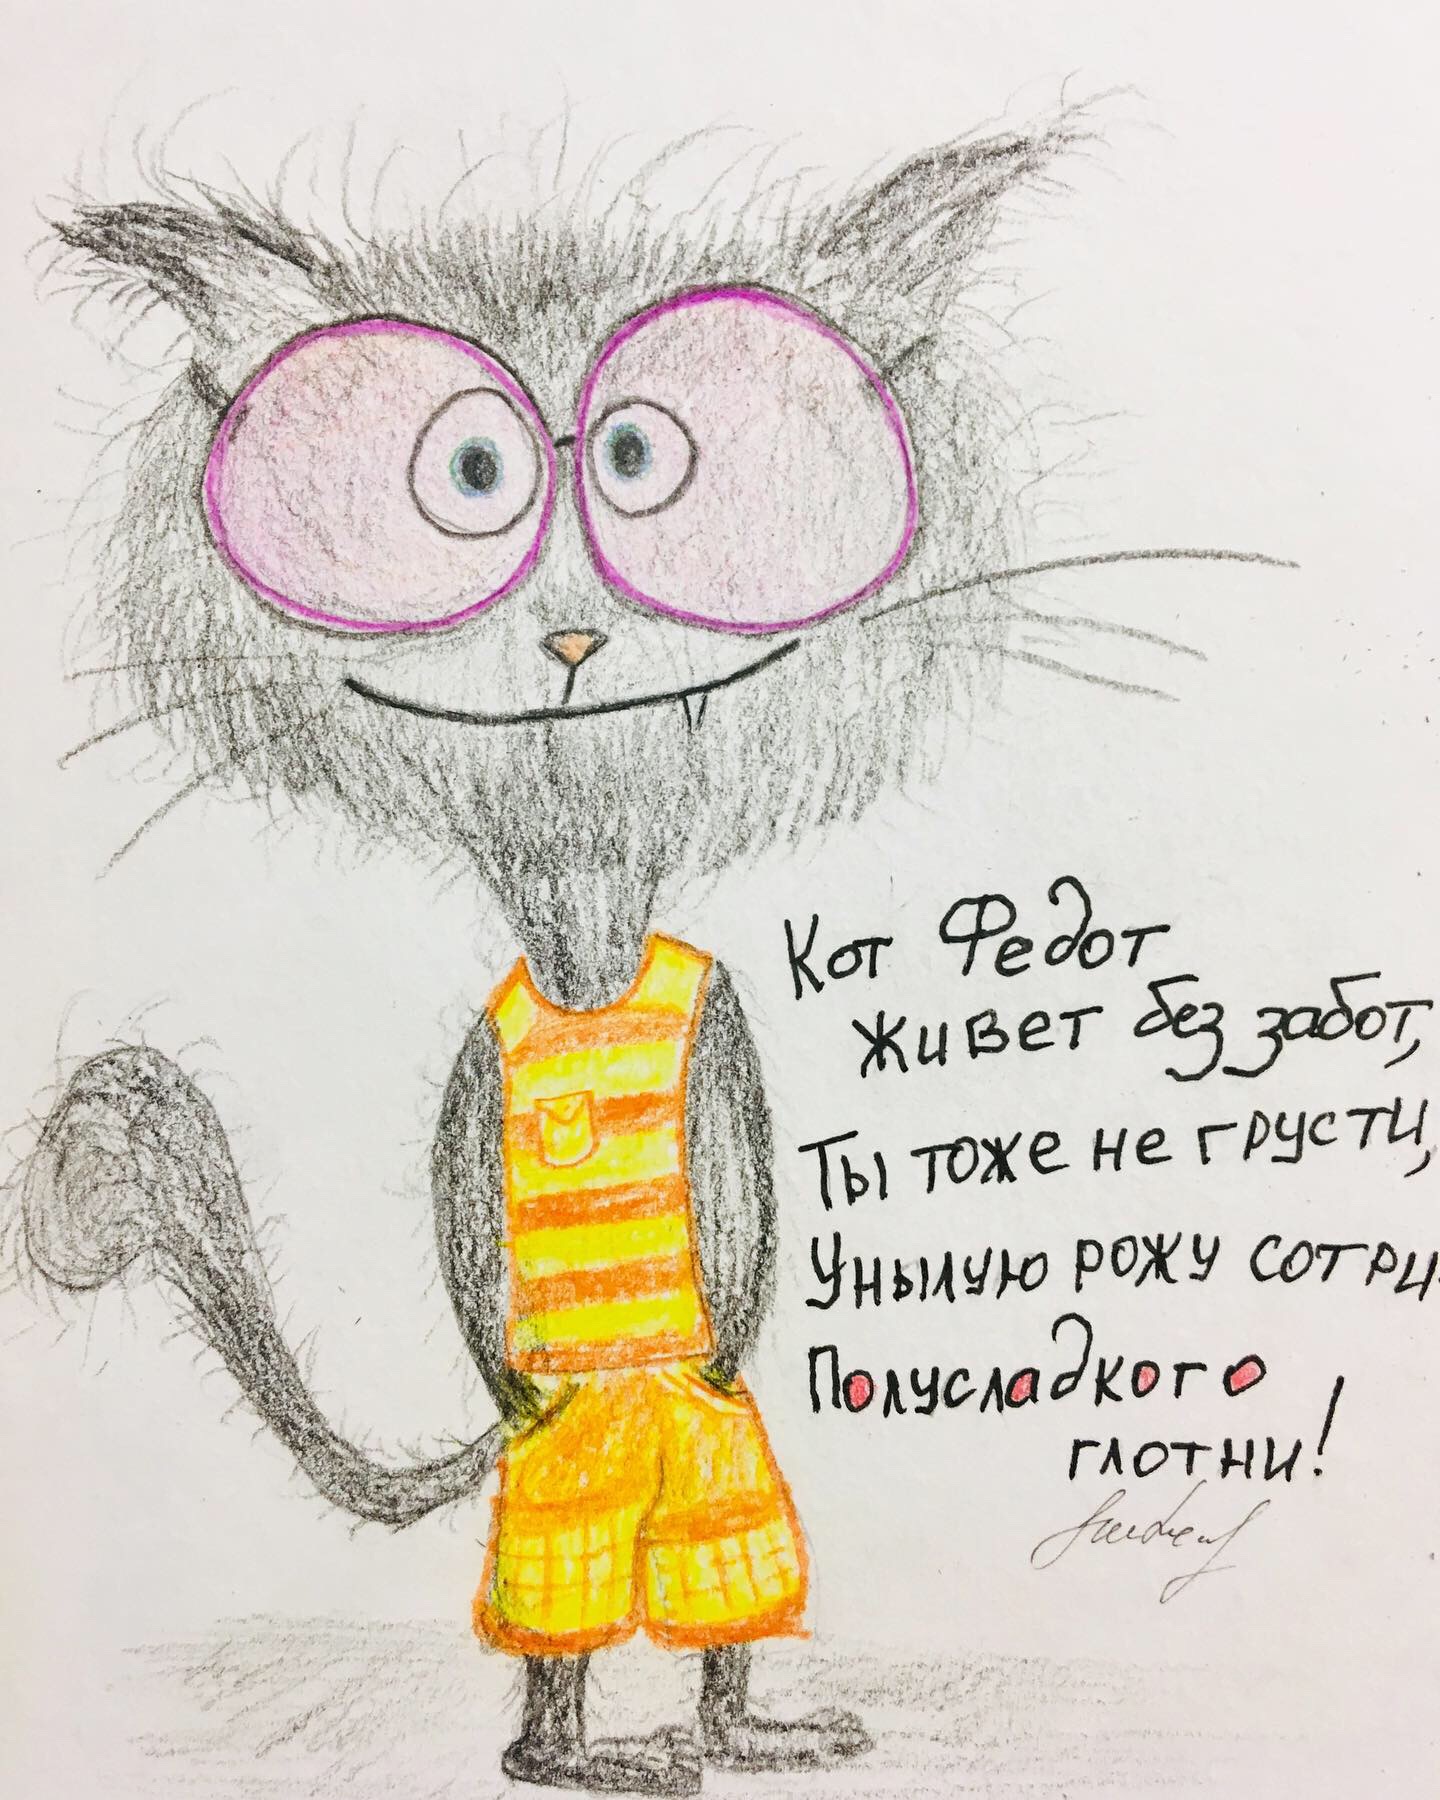 Кот Федот
живет без забот,
Ты тоже не грусти,
Унылую рожу сотри.
Полусладкого
глотни!